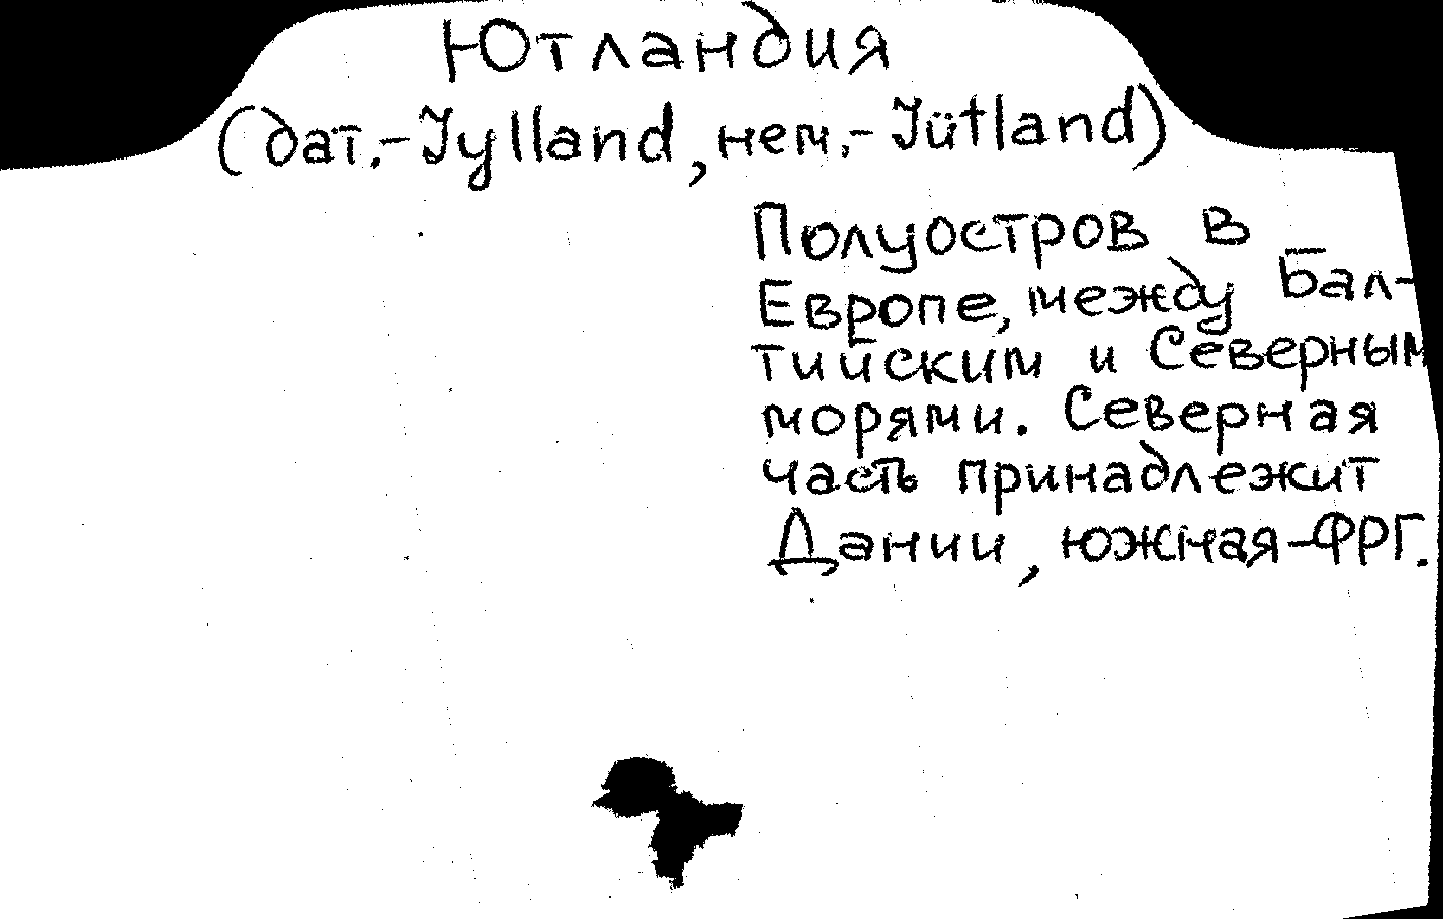 Ютландия
(дат.-Jylland, нем.-Jütland)
Полуостров в
Европе, между Бал-
тийским и Северным
морями. Северная
часть принадлежит
Дании, южная-ФРГ.